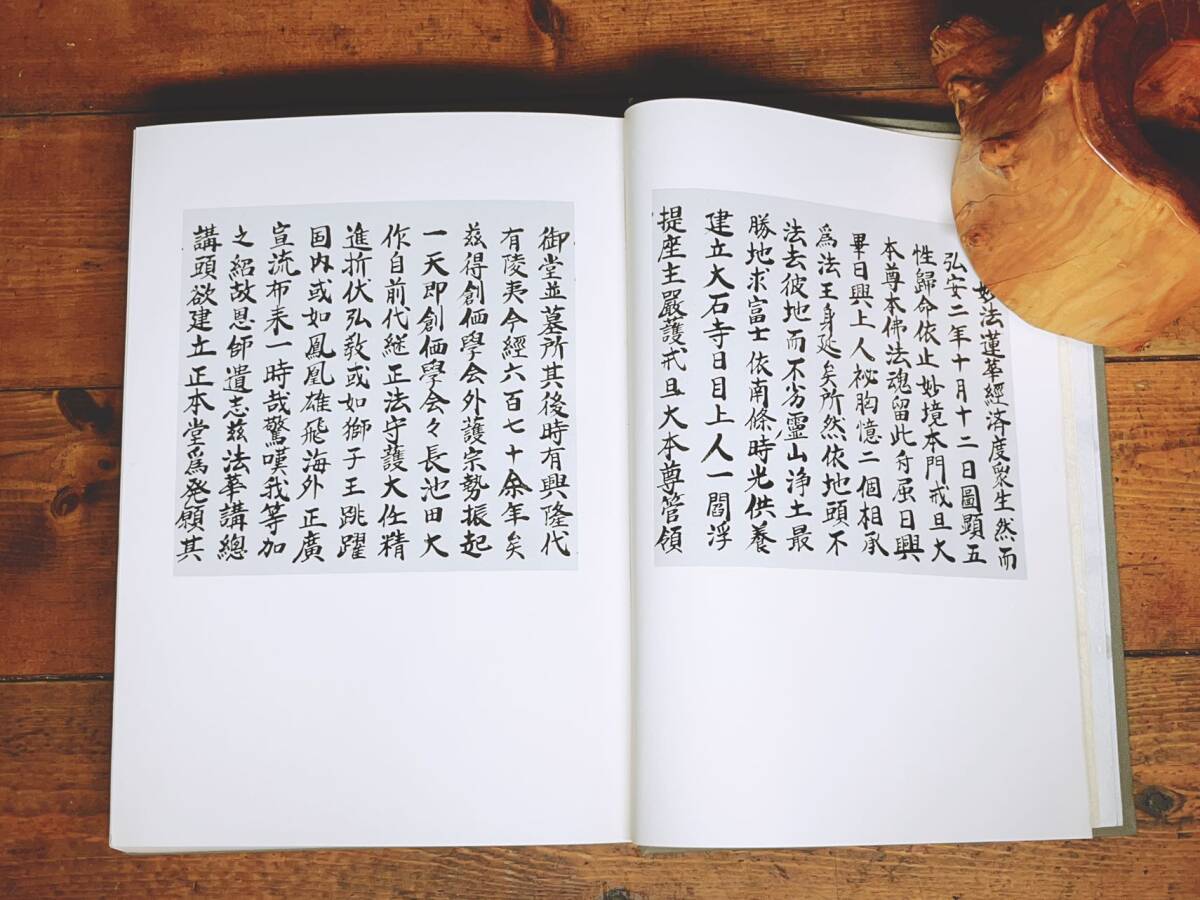 妙法蓮華經済度衆生然而
弘安二年十月十二日圖顕五
性歸命依止妙境本門戒旦大
本尊本佛法魂留此弁虽日興
畢日興上人祕胸憶二個相承
為法王身延矣所然依地頭不
法去彼地而不劣靈山浄土最
勝地求富士依南條時光供養
建立大石寺日目上人一閻浮
提座主嚴護戒旦大本尊管領
御堂並墓所其後時有興隆代
有陵夷今經六百七十余年矣
茲得創価學会外護宗勢振起
一天即創価學会々長池田大
作自前代継正法守護大任精
進折伏弘教或如獅子王跳躍
国内或如鳳凰雄飛海外正廣
宣流布来一時哉驚嘆我等加
之紹故恩師遺志茲法華講總
講頭欲建立正本堂為発願其